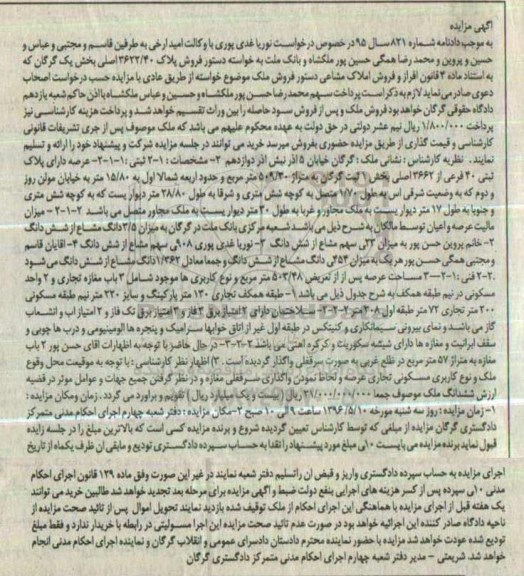 آگهی مزایده
به موجب دادنامه شماره ۸۲۱ سال ۹۵ در خصوص درخواست نوریا غدی پوری با وکالت امید ارخی به طرفین قاسم و مجتبی و عباس و
حسین و پروین و محمد رضا همگی حسین پور ملکشاه و بانک ملت به خواسته دستور فروش پلاک ۳۶۲۲/۴۰ اصلی بخش یک گرگان که
به استناد ماده ۴ قانون افراز و فروش املاک مشاعی دستور فروش ملک موضوع خواسته از طریق عادی با مزایده حسب درخواست اصحاب
دعوی صادر می نماید لازم به ذکر است پرداخت سهم محمد رضا حسن پور ملکشاه و حسین و عباس ملکشاه با اذن حاکم شعبه یازدهم
دادگاه حقوقی گرگان خواهد بود فروش ملک و پس از فروش سود حاصله را بین وراث تقسیم خواهد شد و پرداخت هزینه کارشناسی نیز
پرداخت ۱/۸۰۰/۰۰۰ ریال نیم عشر دولتی در حق دولت به عهده محکوم علیهم می باشد که ملک موصوف پس از جری تشریفات قانونی
کارشناسی و قیمت گذاری از طریق مزایده حضوری بفروش میرسد خرید می توانند در جلسه مزایده شرکت و پیشنهاد خود را ارائه و تسلیم
نمایند. نظریه کارشناس : نشانی ملک : گرگان خیابان ۵ آذر نبش آذر دوازدهم ۲- مشخصات : ۱-۲ ثبتی :۱-۱-۲- عرصه دارای پلاک
ثبتی ۴۰ فرعی از ۳۶۶۲ اصلی بخش ۱ ثبت گرگان به متراژ ۵۰۹/۳۰ متر مربع و حدود اربعه شمالا اول به ۱۵/۸۰ متر به خیابان مولن روژ
و دوم که به وضعیت شرقی است به طول ۱/۷۰ متصل به کوچه شش متری و شرقا به طول ۲۸/۸۰ متر دیوار یست که به کوچه شش متری
و جنوبا به طول ۱۷ متر دیوار یست به ملک مجاور و غربا به طول ۳۰ متر دیوار یست به ملک مجاور متصل می باشد ۲-۱-۲ - میزان
مالیت عرصه و اعیان توسط مالکان به شرح ذیل می باشد شعبه مرکزی بانک ملت در گرگان به میزان ۳/۵ دانگ مشاع از شش دانگ
۲- خانم پروین حسن پور به میزان ۲۳٪ سهم مشاع از شش دانگ ۳- نوریا غدی پوری ۹۰۸٪ سهم مشاع از شش دانگ ۴- اقایان قاسم
و مجتبی همگی حسن پور هر یک به میزان ۴۵۴٪ دانگ مشاع از شش دانگ و جمعا معادل ۱/۳۶۲ دانگ مشاع از شش دانگ می شود
۲-۲ فنی :۱-۲-۳ مساحت عرصه پس از از تعریض ۵۰۳/۴۸ متر مربع و نوع کاربری ها موجود شامل ۳ باب مغازه تجاری و ۲ واحد
مسکونی در نیم طبقه همکف به شرح جدول ذیل می باشد ۱- طبقه همکف تجاری ۱۳۰ متر پارکینگ و سایر ۲۲۰ متر نیم طبقه مسکونی
۲۰۰ متر تجاری ۷۲ متر طبقه اول ۲۰۸ متر
گاز می باشد و نمای بیرونی سیمانکاری و کنیتکس در طبقه اول غیر از اتاق خوابها سرامیک و پنجره ها الومینیومی و درب ها چوبی و
سقف ایرانیت و مغازه ها دارای شیشه سکوریت و کرکره آهنی می باشد ۲-۲-۳- در حال حاضر با توجه به اظهارات اقای حسن پور ۲ باب
مغازه به متراژ ۵۷ متر مربع در ظلع غربی به صورت سرقفلی واگذار گردیده است. ۳) اظهار نظر کارشناسی : با توجه به موقعیت محل وقوع
ملک و نوع کاربری مسکونی تجاری عرضه و لحاظ نمودن واگذاری سرقفلی مغازه و در نظر گرفتن جمیع جهات و عوامل موثر در قضیه
ارزش ششدانگ ملک موصوف جمعا ۲۱/۰۰۰/۰۰۰/۰۰۰ ریال (بیست و یک میلیارد ریال) تقویم و براورد می گردد. زمان ومکان مزایده :
۱- زمان مزایده : روز سه شنبه مورخه ۱۳۹۶/۵/۱۰ ساعت ۹ الی ۱۰ صبح ۲- مکان مزایده : دفتر شعبه چهارم اجرای احکام مدنی متمرکز
دادگستری گرگان مزایده از مبلغی که توسط کارشناس تعیین گردیده شروع و برنده مزایده کسی است که بالاترین مبلغ را در جلسه زایده
قبول نماید برنده مزایده می بایست ۱۰٪ مبلغ مورد پیشنهاد را نقدا به حساب سپرده دادگستری تودیع و مابقی ان ظرف یکماه از تاریخ
اجرای مزایده به حساب سپرده دادگستری واریز و قبض ان راتسلیم دفتر شعبه نمایند در غیر این صورت وفق ماده ۱۲۹ قانون اجرای احکام
مدنی ۱۰٪ سپرده پس از کسر هزینه های اجرایی بنفع دولت ضبط و آگهی مزایده برای مرحله بعد تجدید خواهد شد طالبین خرید می توانند
یک هفته قبل از اجرای مزایده با هماهنگی این اجرای احکام از ملک توقیف شده بازدید نمایند تحویل اموال پس از تائید صحت مزایده از
ناحیه دادگاه صادر کننده این اجرائیه خواهد بود در صورت عدم تائید صحت مزایده این اجرا مسولیتی در رابطه با خریدار ندارد و فقط مبلغ
تودیع شده عودت خواهد شد مزایده با حضور نماینده محترم دادستان دادسرای عمومی و انقلاب گرگان و نماینده اجرای احکام مدنی انجام
خواهد شد. شریعتی - مدیر دفتر شعبه چهارم اجرای احکام مدنی متمرکز دادگستری گرگان